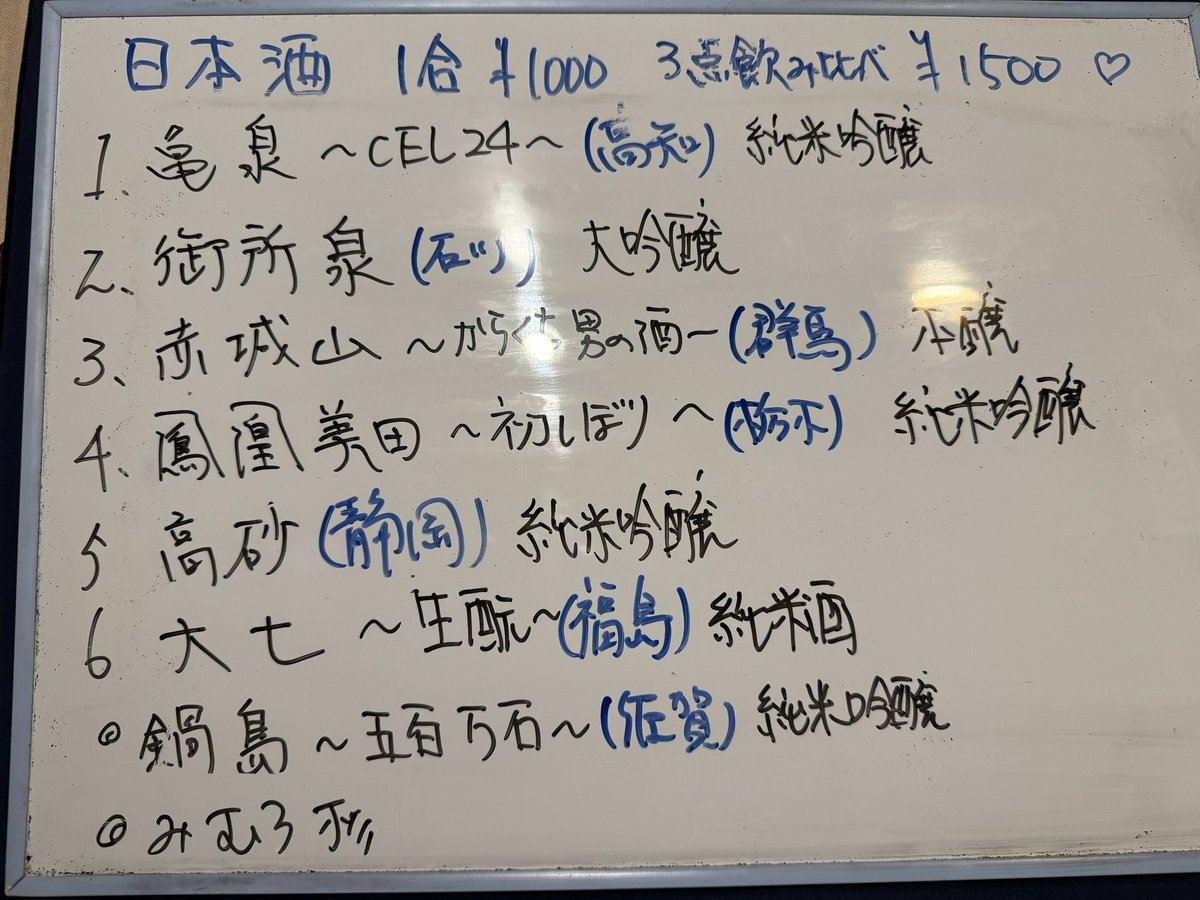 日本酒 1合 ¥1000 3点飲み比べ ¥1500 ♡
1、亀泉 ～CEL24～ (高知) 純米吟醸
2、御所泉 (石川) 大吟醸
3、赤城山 ～からくち 男の酒～ (群馬) 本醸
4、鳳凰美田 ～初しぼり～ (栃木) 純米吟醸
5 高砂 (静岡) 純米吟醸
6 大七 ～生酛～ (福島) 純米酒
◎ 鍋島 ～五百万石～ (佐賀) 純米吟醸
◎ みむろ杉